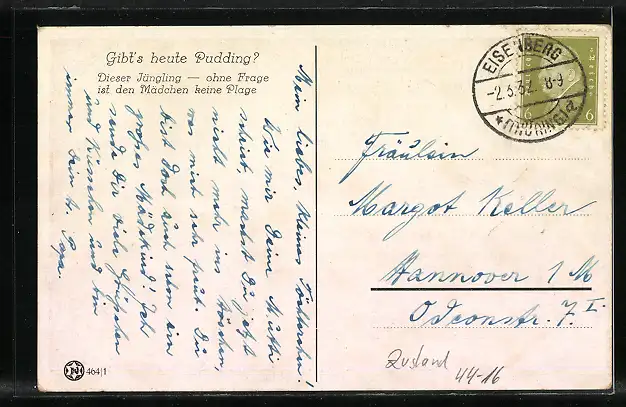 Gibt's heute Pudding?
Dieser Jüngling — ohne Frage
ist den Mädchen keine Plage
Mein liebes, kleines Töchterchen!
Wie mir Deine Mutti
schreibt, machst Du jetzt
nicht mehr ins Höschen,
was mich sehr freut. Du
bist doch auch schon ein
großes Mädelein! Ich
sende Dir viele Grüßchen
und Küsschen und bin
immer Dein lb. Papa.
464/1
EISENBERG
-2.3.32. 8-9
*(THÜRING)a
6 6
Fräulein
Margot Keller
Hannover 1 M
Odeonstr. 7. I.
Zustand
44-16